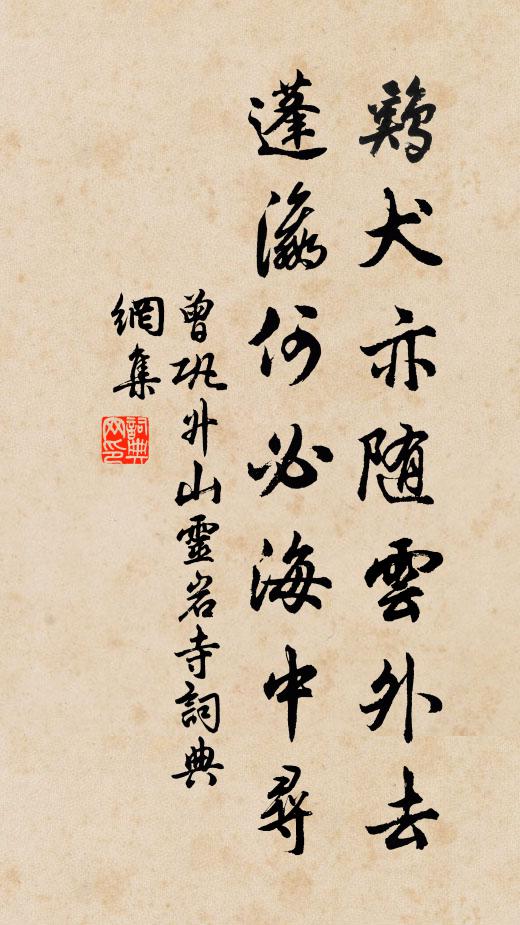 鷄犬亦随雲外去
蓬瀛何必海中尋
曾巩升山靈岩寺詞典
網集
詞典
网印